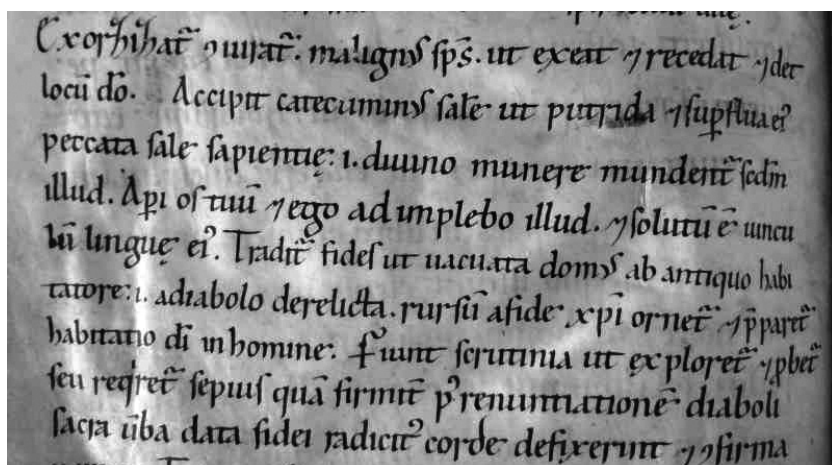 Exorhihat̃ ꝯiurat̃. malignꝰ sp̄s. ut exeat ⁊ recedat ⁊ det
locū dō. Accipit catecuminꝰ salē ut putrida ⁊ suꝑflua eiꝰ
peccata sale sapientię: i. diuino munere mundent̃ sedm̄
illud. Aꝑi os tuū ⁊ ego adimplebo illud. ⁊ solutū ē uincu
lū linguę eiꝰ. Tradit̃ fides ut uacuata domꝰ ab antiquo habi
tatore: i. adiabolo derelicta. rursū afide xp̄i ornet̃ ⁊ p̄paret̃
habitatio dī inhomine. Fiunt scrutinia ut exploret̃ ⁊ ꝓbet̃
seu reqͥret̃ sepius quā firmit̄ pꝰ renuntiationē diaboli
sacra ūba data fidei radicitꝰ corde defixerint ⁊ ꝯfirma